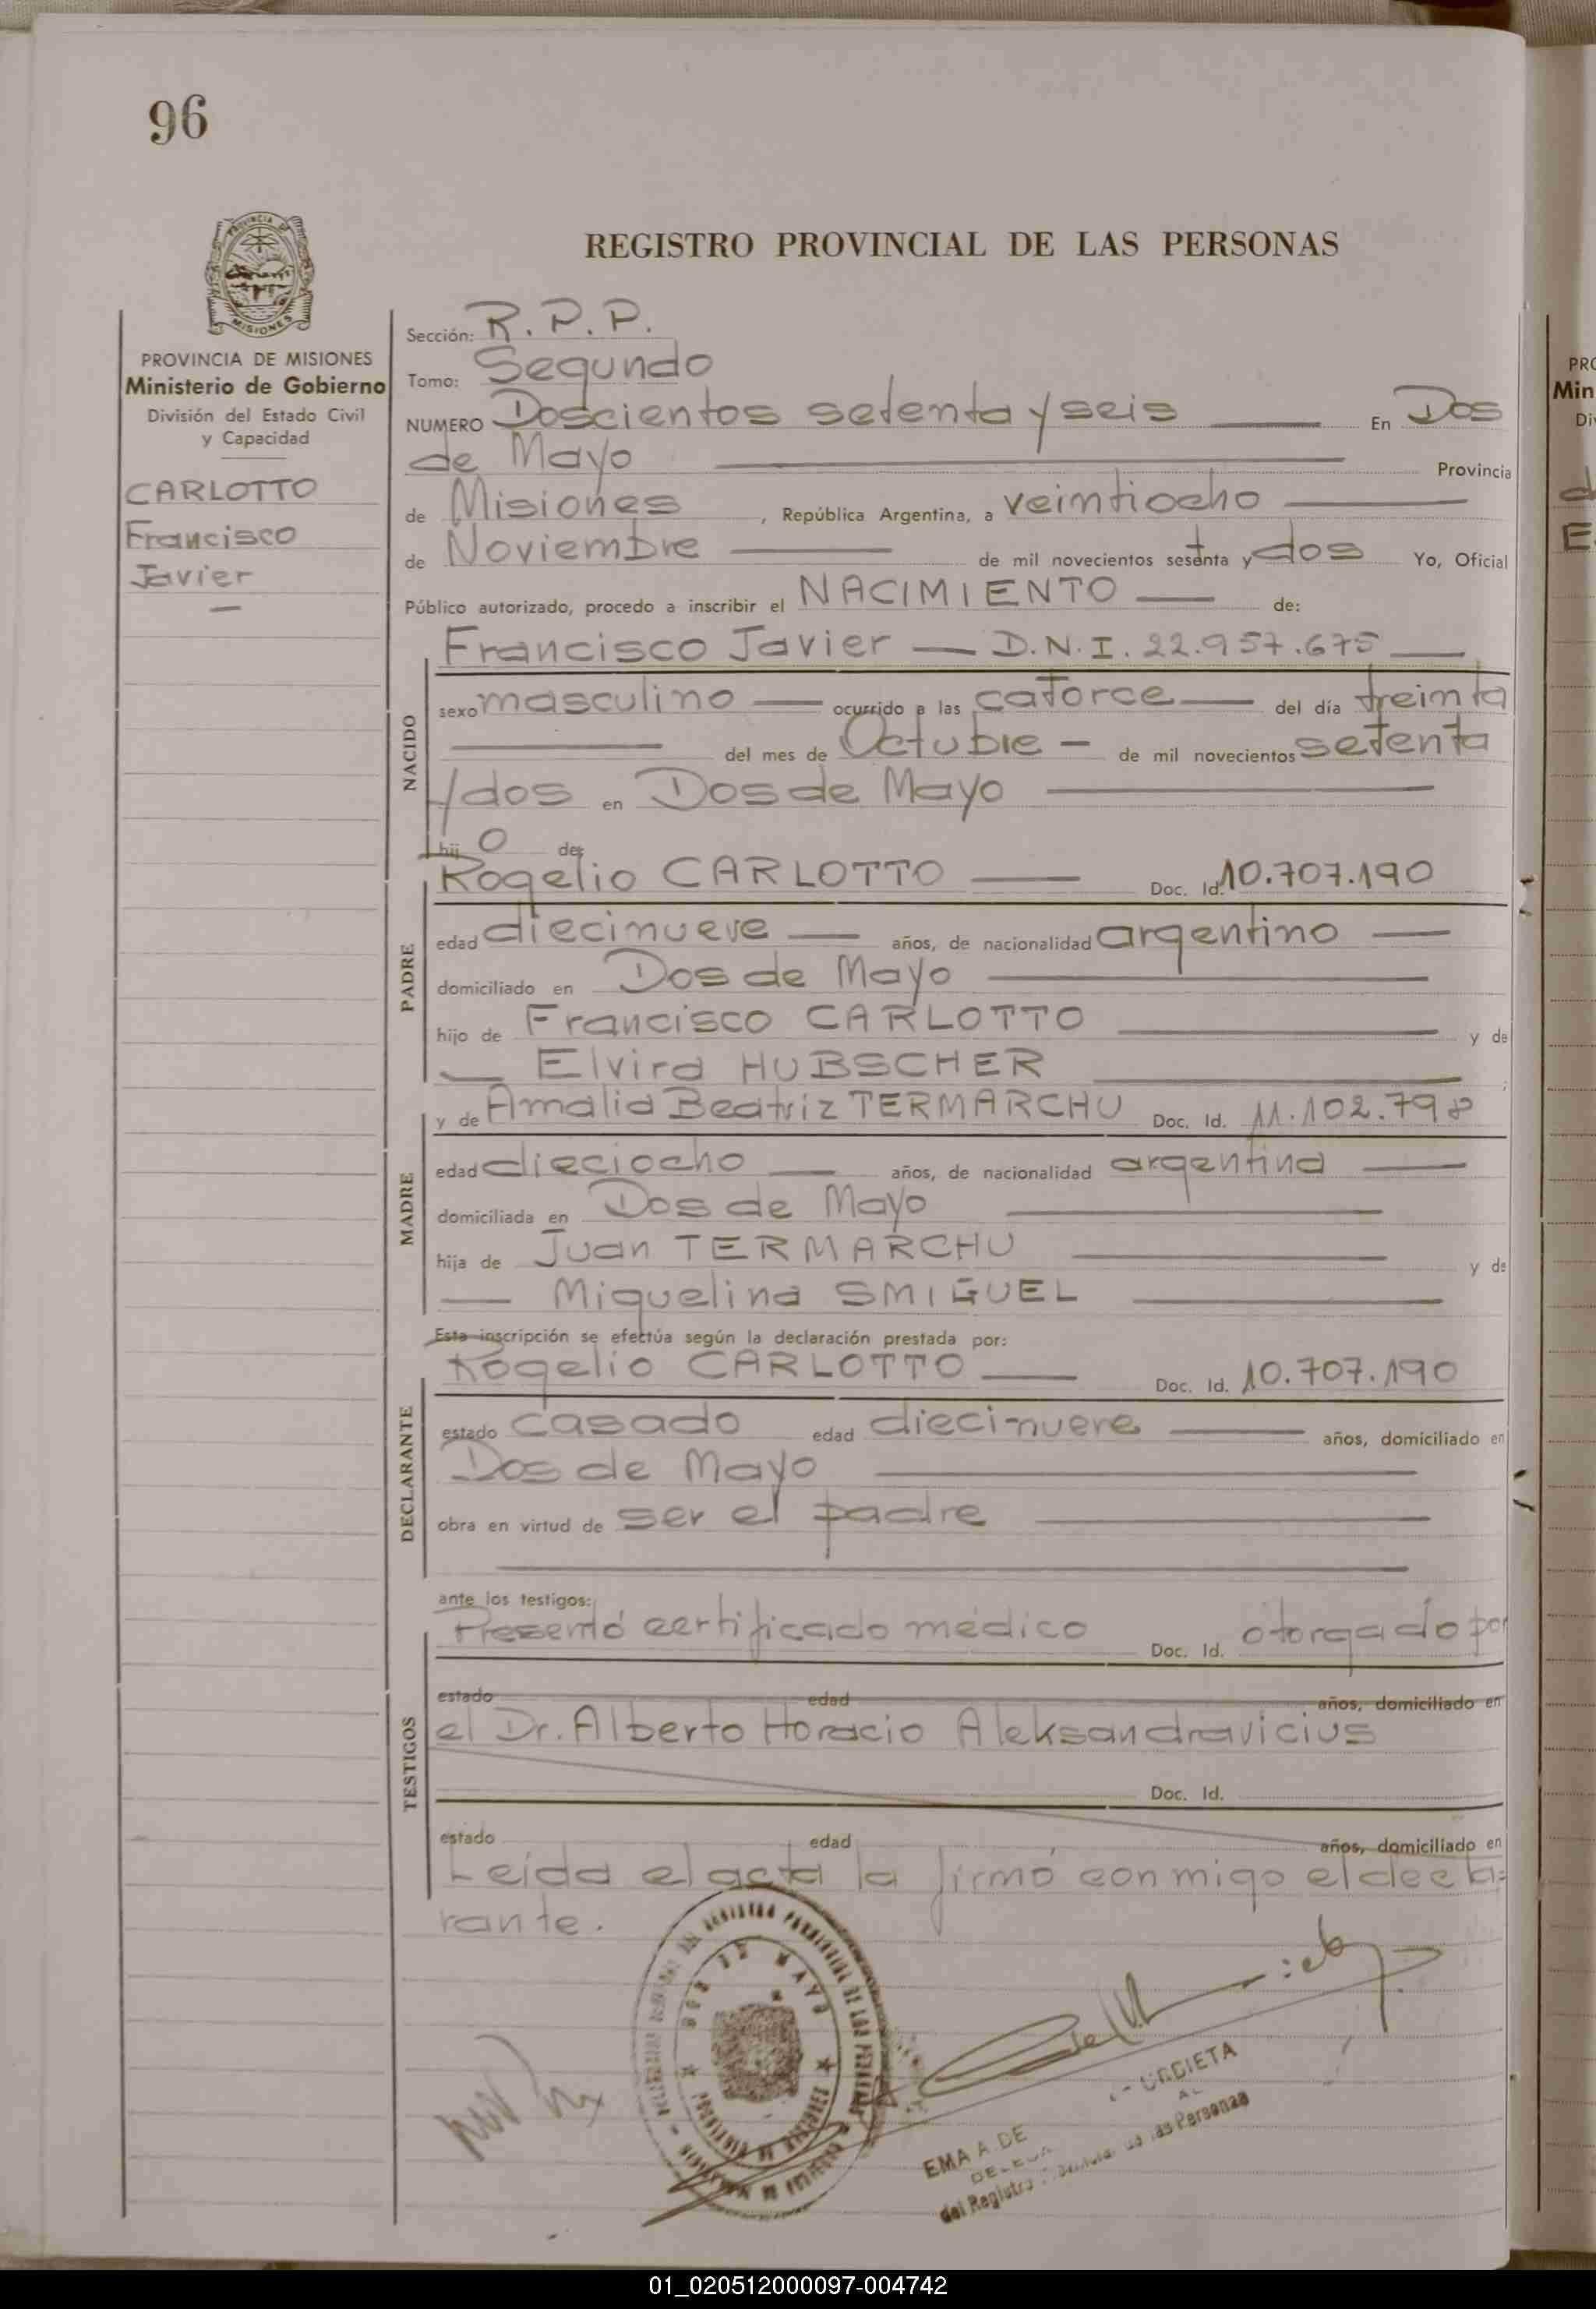 96
PROVINCIA DE
MISIONES
PROVINCIA DE MISIONES
Ministerio de Gobierno
División del Estado Civil
y Capacidad
CARLOTTO
Francisco
Javier
REGISTRO PROVINCIAL DE LAS PERSONAS
Sección: R.P.P.
Tomo: Segundo
NUMERO Doscientos setenta y seis En Dos
de Mayo Provincia
de Misiones, República Argentina, a veintiocho
de Noviembre de mil novecientos setenta y dos Yo, Oficial
Público autorizado, procedo a inscribir el NACIMIENTO de:
Francisco Javier — D.N.I. 22.957.675 —
NACIDO
sexo masculino — ocurrido a las catorce — del día treinta
del mes de Octubre — de mil novecientos setenta
y dos en Dos de Mayo
hijo de:
Rogelio CARLOTTO — Doc. Id. 10.707.190
PADRE
edad diecinueve — años, de nacionalidad argentino —
domiciliado en Dos de Mayo
hijo de Francisco CARLOTTO y de
— Elvira HUBSCHER
y de Amalia Beatriz TERMARCHU Doc. Id. 11.102.798
MADRE
edad dieciocho — años, de nacionalidad argentina —
domiciliada en Dos de Mayo
hija de Juan TERMARCHU y de
— Miguelina SMIGUEL
Esta inscripción se efectúa según la declaración prestada por:
Rogelio CARLOTTO — Doc. Id. 10.707.190
DECLARANTE
estado casado edad diecinueve — años, domiciliado en
Dos de Mayo
obra en virtud de ser el padre
ante los testigos:
Presentó certificado médico Doc. Id. otorgado por
TESTIGOS
estado edad años, domiciliado en
el Dr. Alberto Horacio Aleksandravicius
Doc. Id.
estado edad años, domiciliado en
Leida el acta la firmó conmigo el decla=
rante.
DOS DE MAYO
URBIETA
EMA A. DE
del Registro de las Personas
01_020512000097-004742